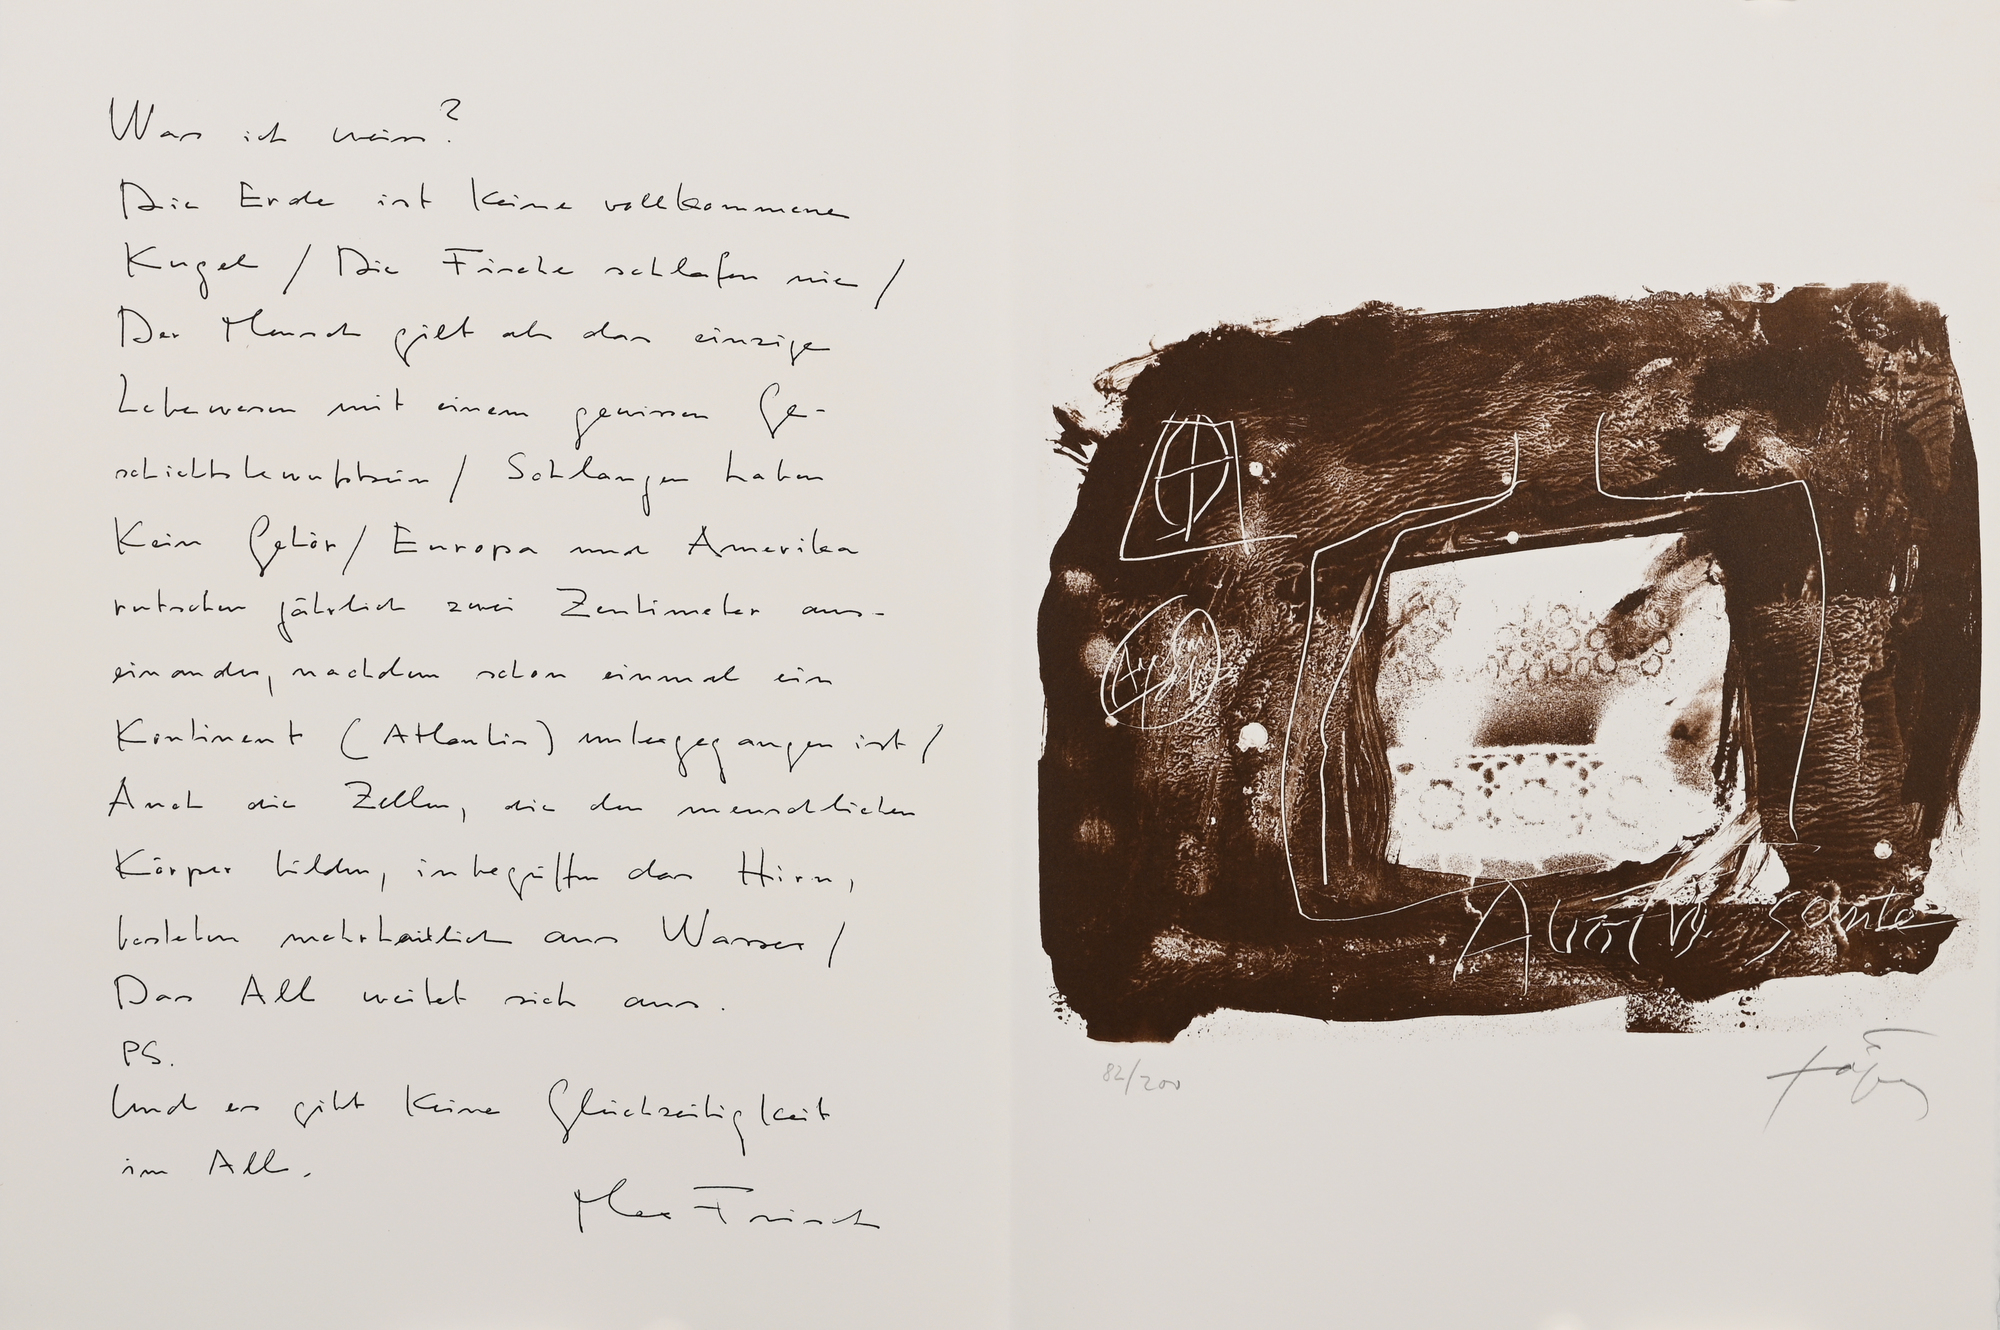 Was ich weiss?
Die Erde ist keine vollkommene
Kugel / Die Fische schlafen nie /
Der Mensch gilt als das einzige
Lebewesen mit einem gewissen Ge-
schichtsbewußtsein / Schlangen haben
kein Gehör / Europa und Amerika
rutschen jährlich zwei Zentimeter aus-
einander, nachdem schon einmal ein
Kontinent (Atlantis) untergegangen ist /
Auch die Zellen, die den menschlichen
Körper bilden, inbegriffen das Hirn,
bestehen mehrheitlich aus Wasser /
Das All weitet sich aus.
PS.
Und es gibt keine Gleichzeitigkeit
im All.
Max Frisch
sante
82/200
Tàpies